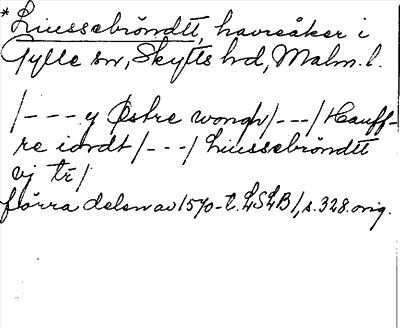 *Liussebröndtt, havreåker i
Gylle sn, Skytts hd, Malm. l.
/--- y Østre wongh/---/ Hauff-
re iordt/---/ Liussebröndtt
vj tr/
förra delen av 1570-t. LSLB1, s. 328. orig.